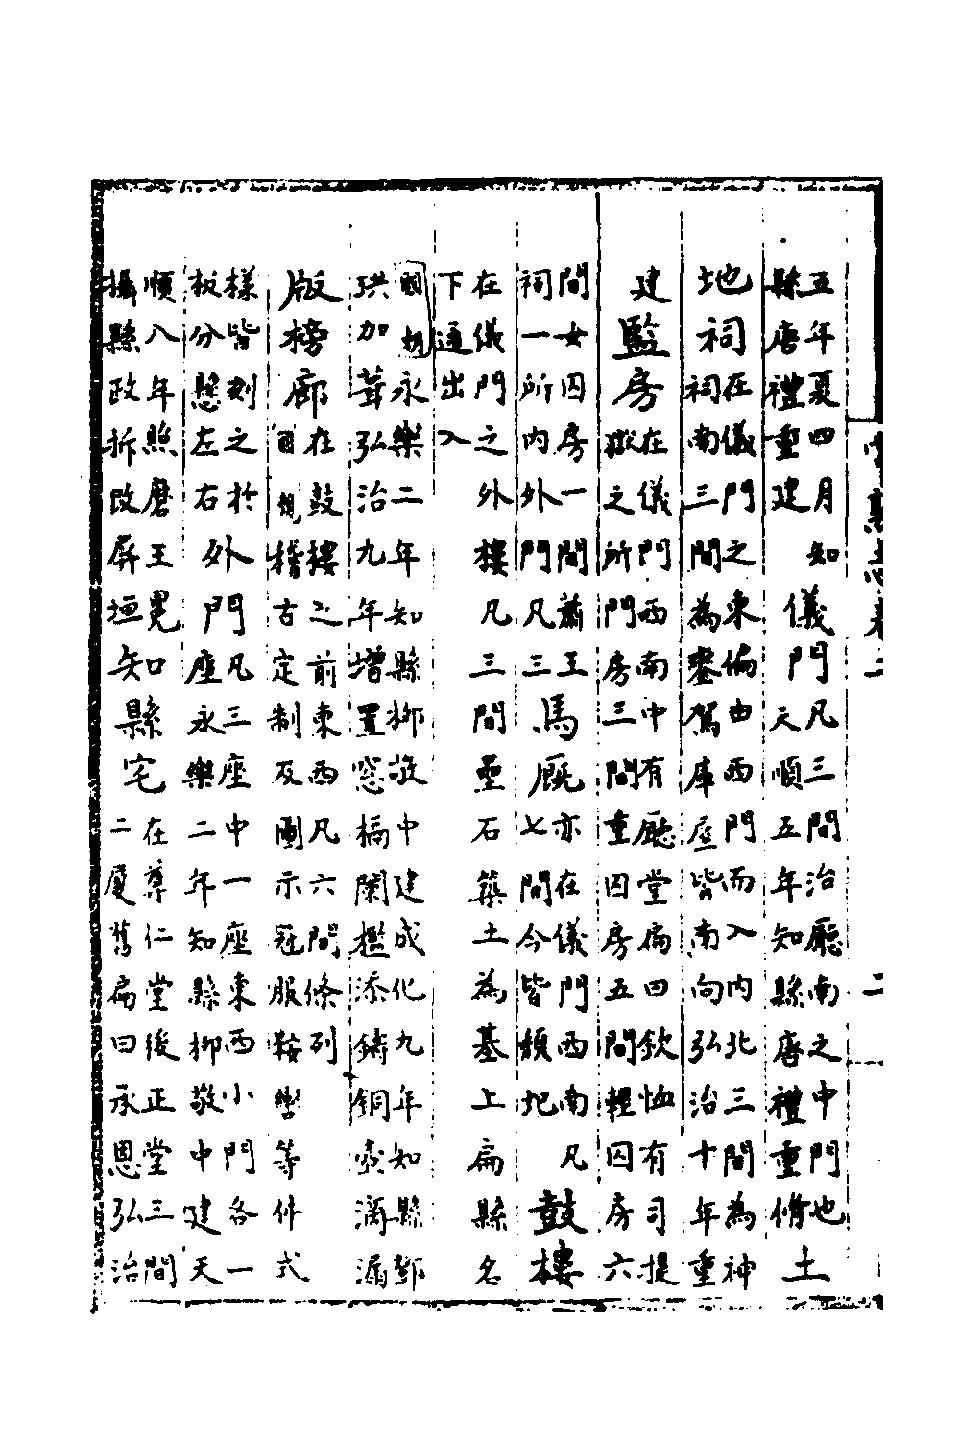 五年夏四月知
縣唐禮重建
儀門
凡三間治廳南之中門也
天順五年知縣唐禮重脩
土
地祠
在儀門之東偏由西門而入内北三間為神
祠南三間為鑾駕庫屋皆南向弘治十年重
建
監房
在儀門西南中有廳堂扁曰欽恤有司提
獄之所門房三間重囚房五間輕囚房六
間女囚房一間蕭王
祠一所内外門凡三
馬厩
亦在儀門西南凡
七間今皆頹圯
鼓樓
在儀門之外樓凡三間壘石築土為基上扁縣名
下通出入
國朝永樂二年知縣柳敬中建成化九年知縣鄧
珙加葺弘治九年增置窓槅闌檻添鑄銅壺滴漏
版榜廊
在鼓樓之前東西凡六間條列
稽古定制及圖示冠服鞍轡等件式
樣皆刻之於
板分懸左右
外門
凡三座中一座東西小門各一
座永樂二年知縣柳敬中建天
順八年照磨王冕
攝縣政拆改屏垣
知縣宅
在尊仁堂後正堂三間
二廈舊扁曰承恩弘治
志卷二
二